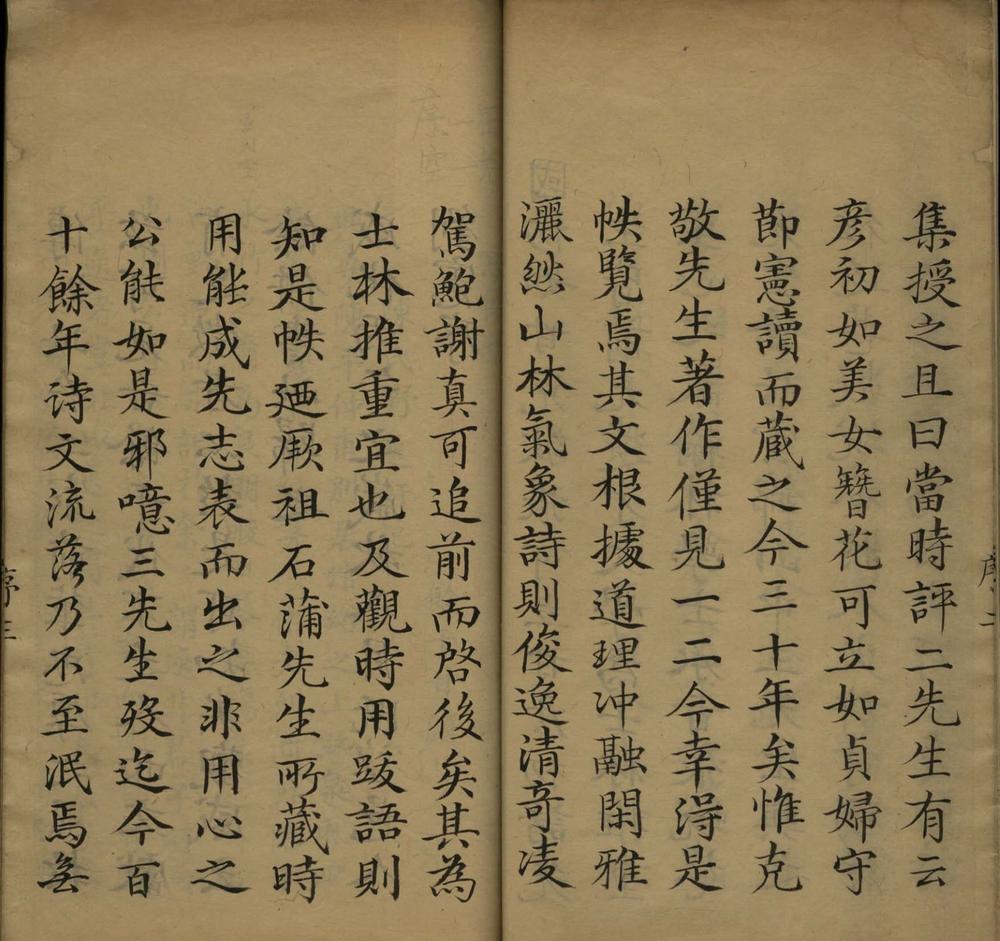 集授之且曰當時評二先生有云
彦初如美女簪花可立如貞婦守
節憲讀而藏之今三十年矣惟克
敬先生著作僅見一二今幸淂是
帙覽焉其文根據道理冲融閑雅
灑然山林氣象詩則俊逸清奇凌
駕鮑謝真可追前而啓後矣其為
士林推重宜也及觀時用跋語則
知是帙廼厥祖石蒲先生所藏時
用能成先志表而出之非用心之
公能如是邪噫三先生歿迄今百
十餘年诗文流落乃不至泯焉無
序三